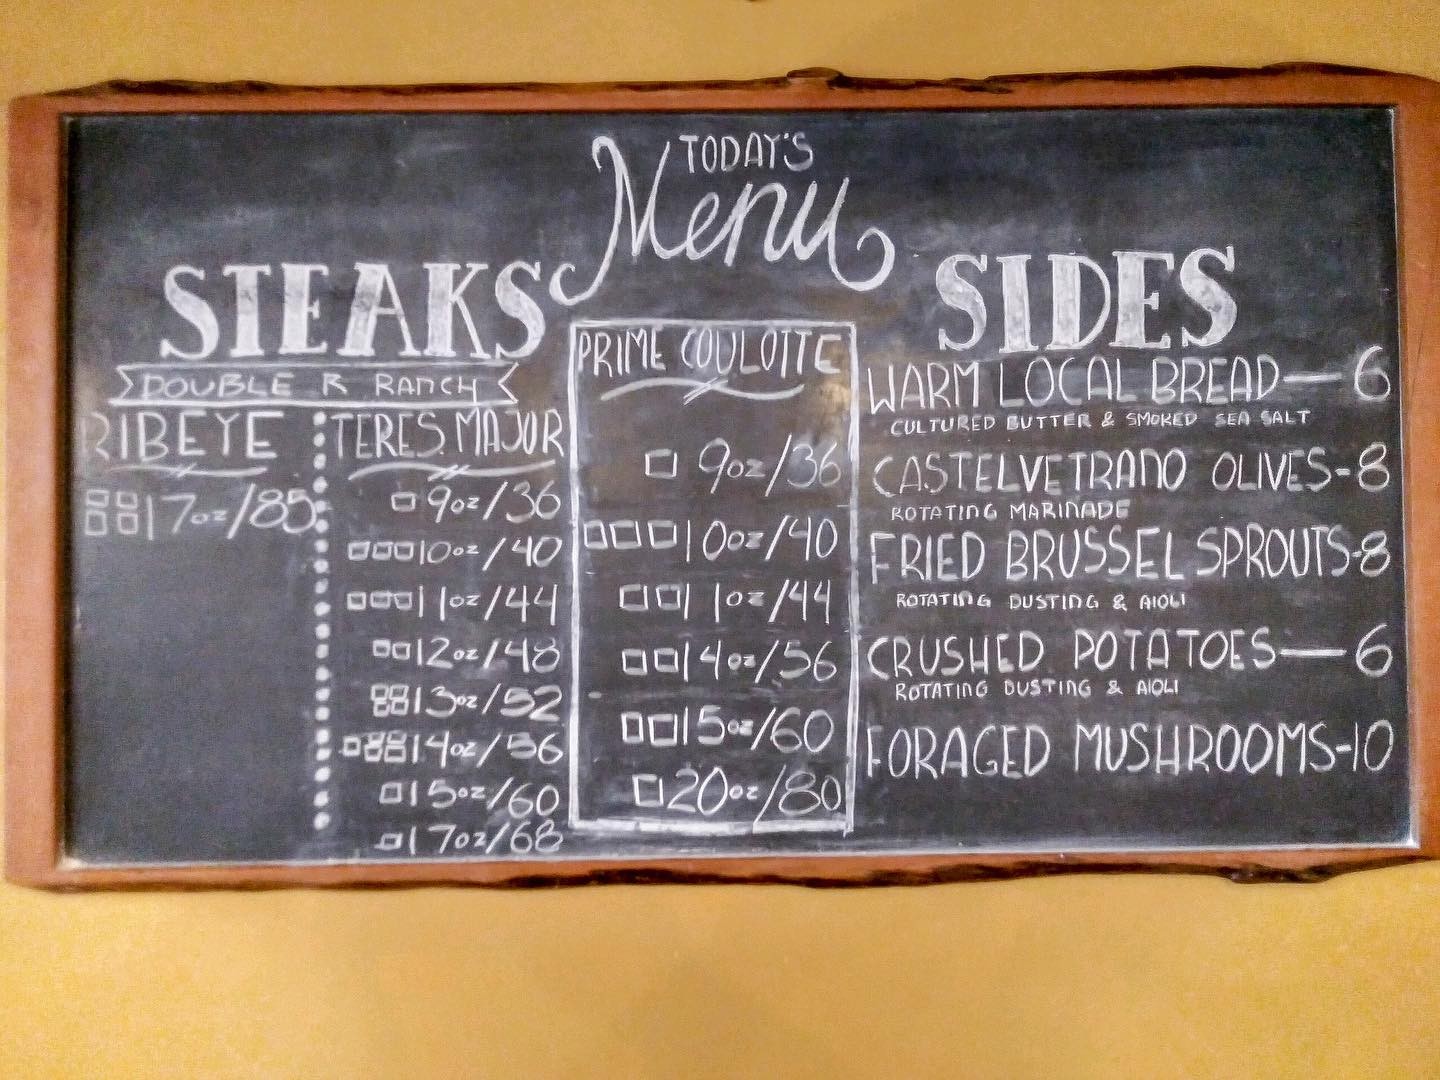 TODAY'S
Menu
STEAKS
DOUBLE R RANCH
RIBEYE
17oz/85
TERES MAJOR
9oz/36
10oz/40
11oz/44
12oz/48
13oz/52
14oz/56
15oz/60
17oz/68
PRIME COULOTTE
9oz/36
10oz/40
11oz/44
14oz/56
15oz/60
20oz/80
SIDES
WARM LOCAL BREAD—6
CULTURED BUTTER & SMOKED SEA SALT
CASTELVETRANO OLIVES-8
ROTATING MARINADE
FRIED BRUSSEL SPROUTS-8
ROTATING DUSTING & AIOLI
CRUSHED POTATOES—6
ROTATING DUSTING & AIOLI
FORAGED MUSHROOMS-10